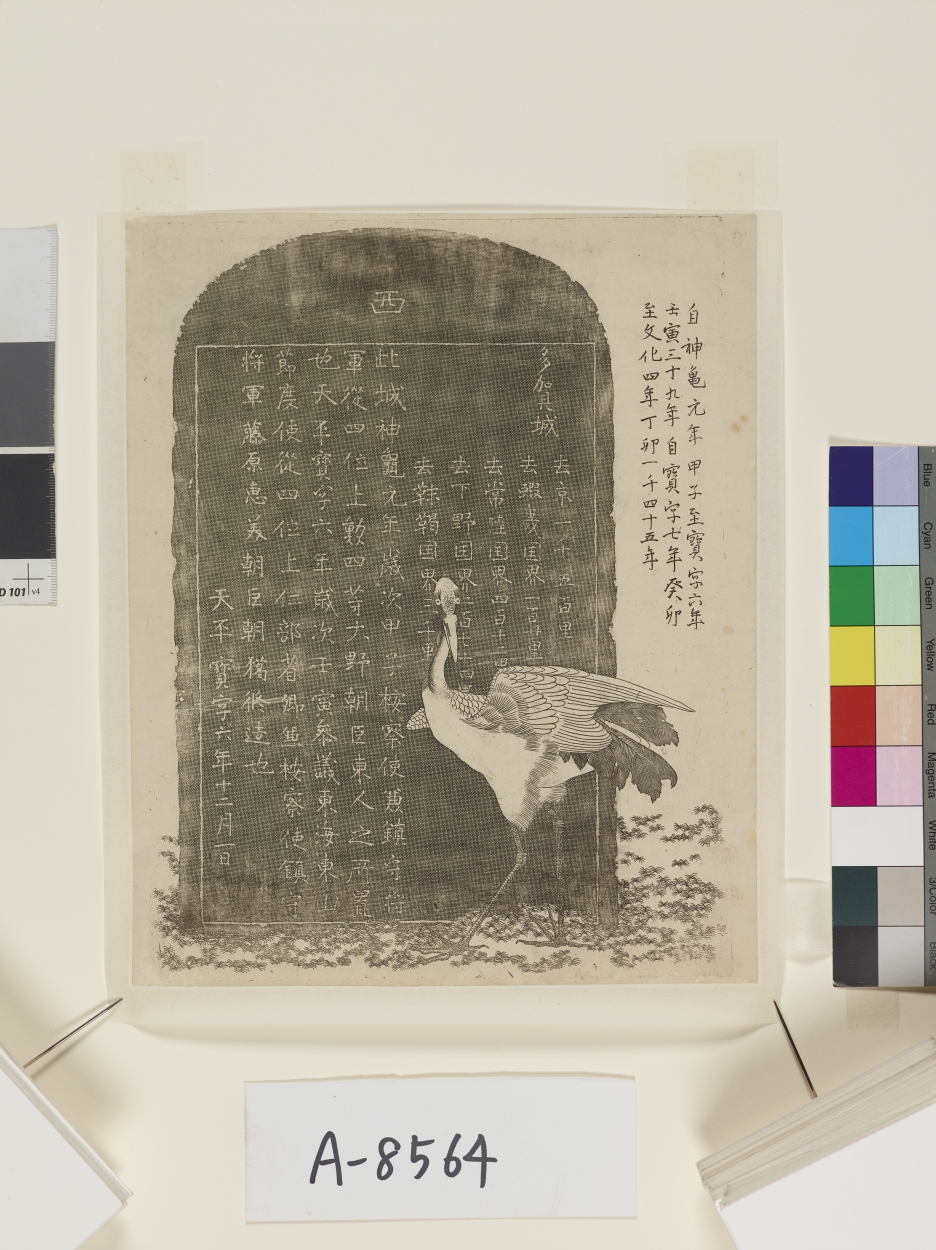 自神亀元年甲子至寶字六年
壬寅三十九年自寶字七年癸卯
至文化四年丁卯一千四十五年
西
多賀城
去京一千五百里
去蝦夷国界一百廿里
去常陸国界四百十二里
去下野国界二百七十四里
去靺鞨国界三千里
此城神龜元年歲次甲子桉察使兼鎮守將
軍從四位上勳四等大野朝臣東人之所置
也天平寶字六年歲次壬寅參議東海東山
節度使從四位上仁部省卿兼桉察使鎮守
將軍藤原惠美朝臣朝獦修造也
天平寶字六年十二月一日
A-8564
D 101 v4
Blue
Cyan
Green
Yellow
Red
Magenta
White
3/Color
Black